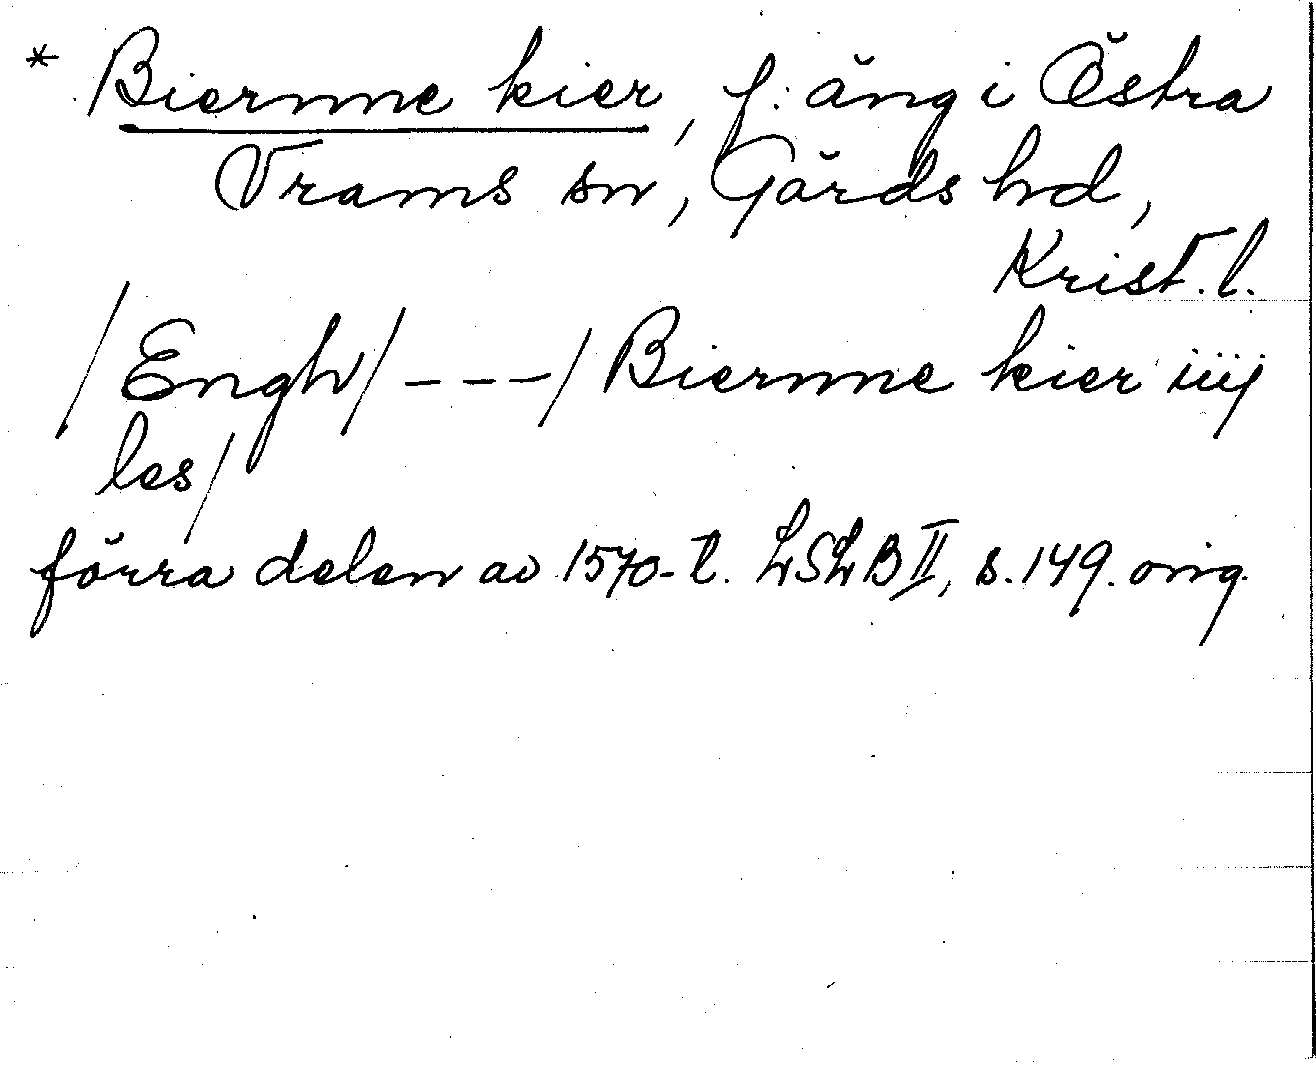 * Biernne kier, f. äng i Östra
Vrams sn, Gärds hd,
Krist. l.
/Engh/ --- / Biernne kier iiij
les/
förra delen av 1570-t. LSLB II, s. 149. orig.